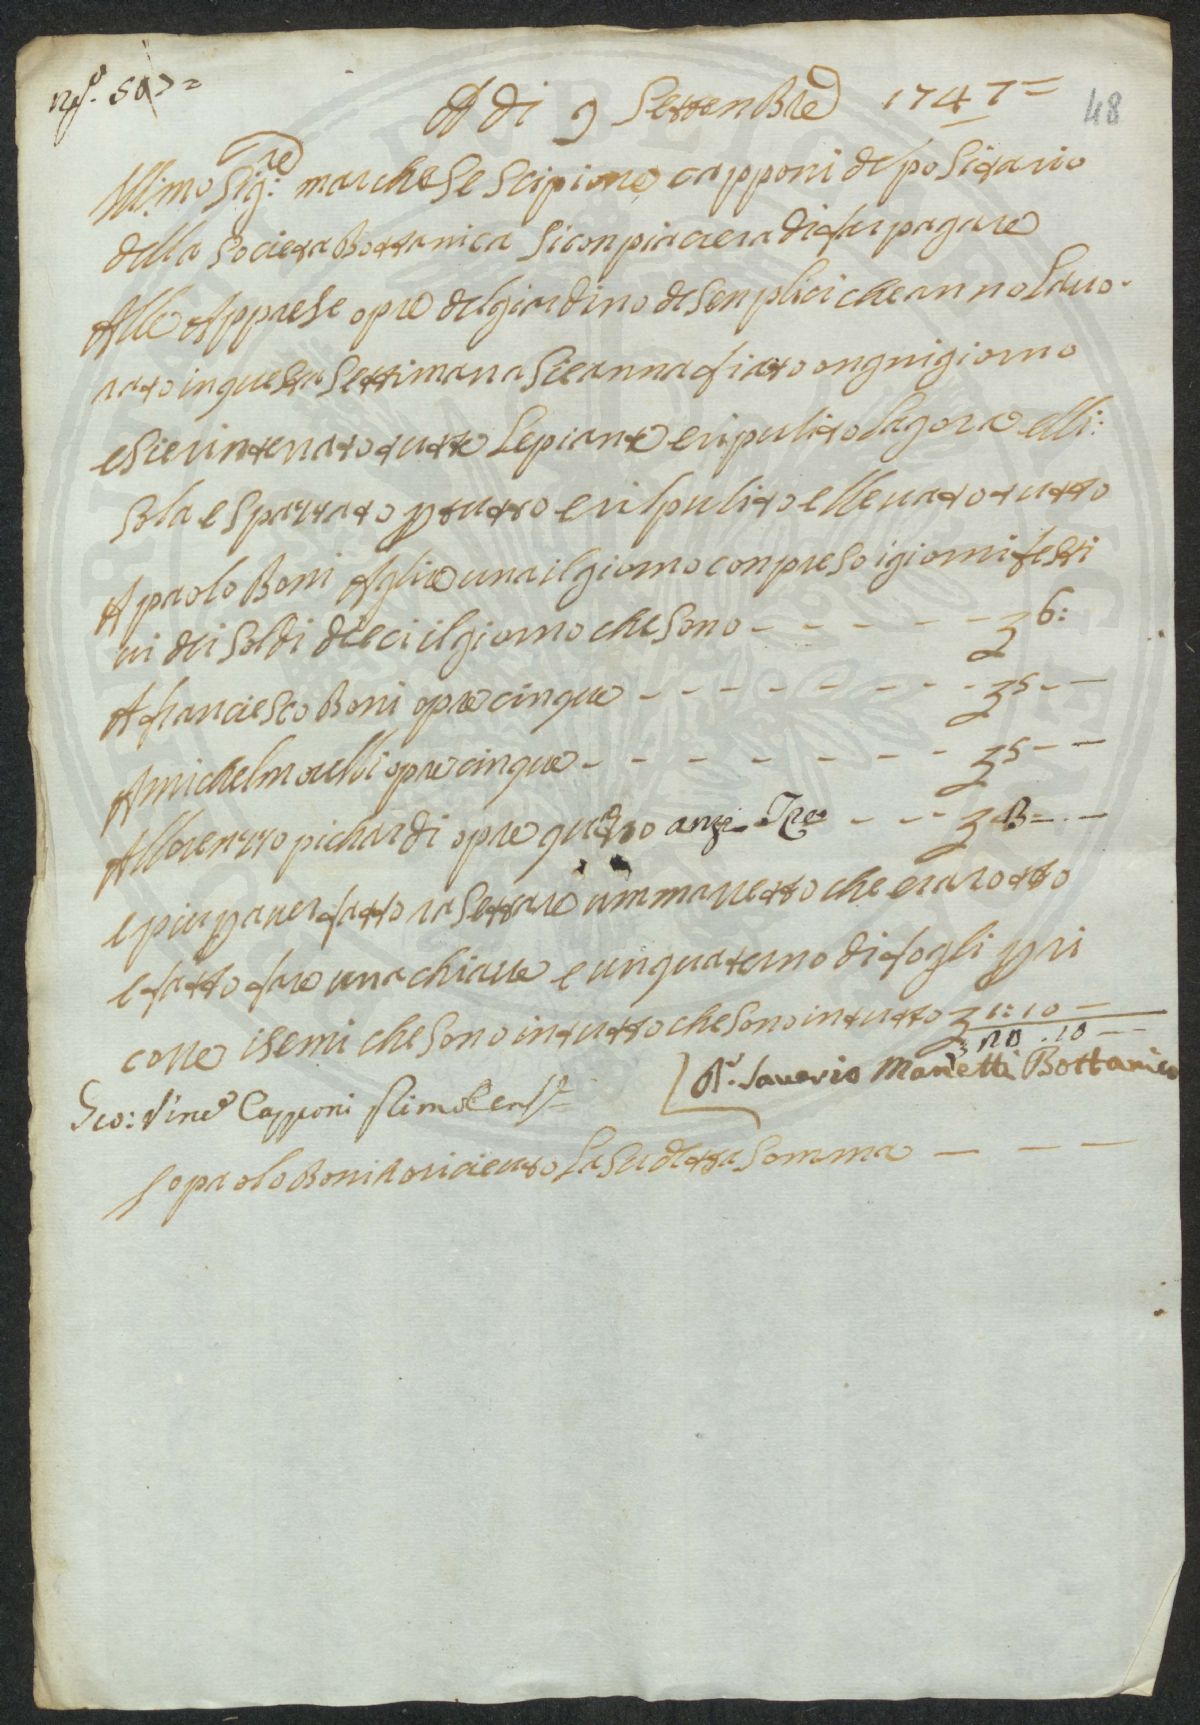 A di 9 Settenbre 1747=
48
Ill:mo Sig:re marchese Scipione capponi depositario
della Societa Bottanica si conpiacera di far pagare
Alle Apprese opre del giardino de senplici che anno Lavo-
rato in questa Settimana Sie annafiato ongni giorno
e Sie rinterrato tutte Le piante e ripulito La gora elli:
Sola e spazzato p tutto e rilpulito elleuato tutto
A paolo Boni Aglire una il giorno conpreso i giorni festi
ui dei Soldi dieci il giorno che Sono - - - - - - 6:
A franciesco Boni opre cinque - - - - - - - - 5 - -
A michel morelli opre cinque - - - - - - - 5 - -
Allorenzzo pichardi opre quatro anzi Tre - - - 3 - . -
e piu p auer fatto rasettare unmanetto che era rotto
e fatto fare una chiaue e un quaterno di fogli p ri
corre i semi che Sono in tutto che Sono in tutto 1: 10 -
20 . 10 - -
D.r Saverio Manetti Bottanico
Sco: Vinc.o Capponi
Io paolo Boni o riceuto La Sudetta Somma - - -